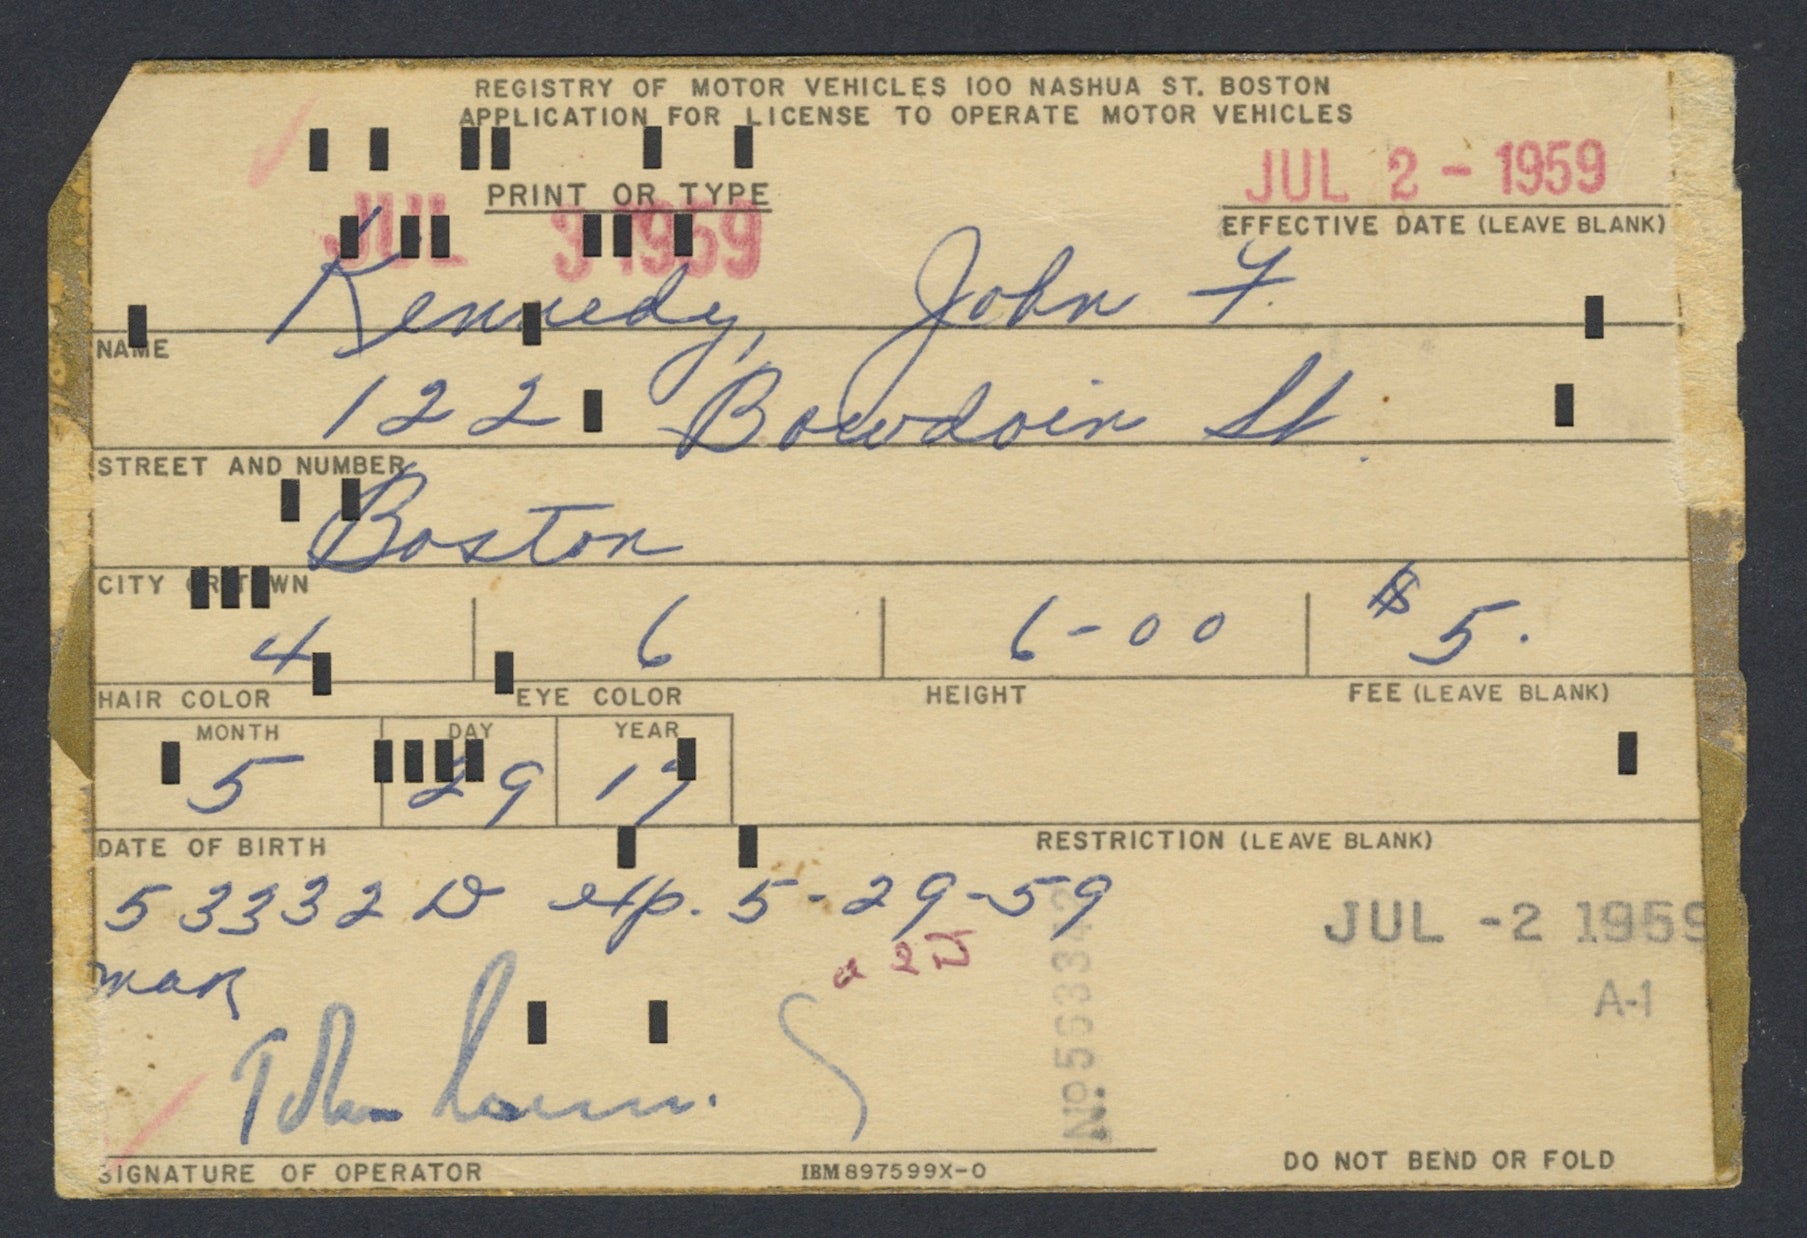 REGISTRY OF MOTOR VEHICLES 100 NASHUA ST. BOSTON
APPLICATION FOR LICENSE TO OPERATE MOTOR VEHICLES
JUL 2 - 1959
PRINT OR TYPE
JUL 3 1959
EFFECTIVE DATE (LEAVE BLANK)
Kennedy, John F.
NAME
122 Bowdoin St.
STREET AND NUMBER
Boston
CITY OR TOWN
4 6 6-00 $5.
HAIR COLOR EYE COLOR HEIGHT FEE (LEAVE BLANK)
MONTH DAY YEAR
5 29 17
DATE OF BIRTH RESTRICTION (LEAVE BLANK)
53332 D exp. 5-29-59
JUL -2 1959
A-1
John
SIGNATURE OF OPERATOR IBM 897599X-0 DO NOT BEND OR FOLD